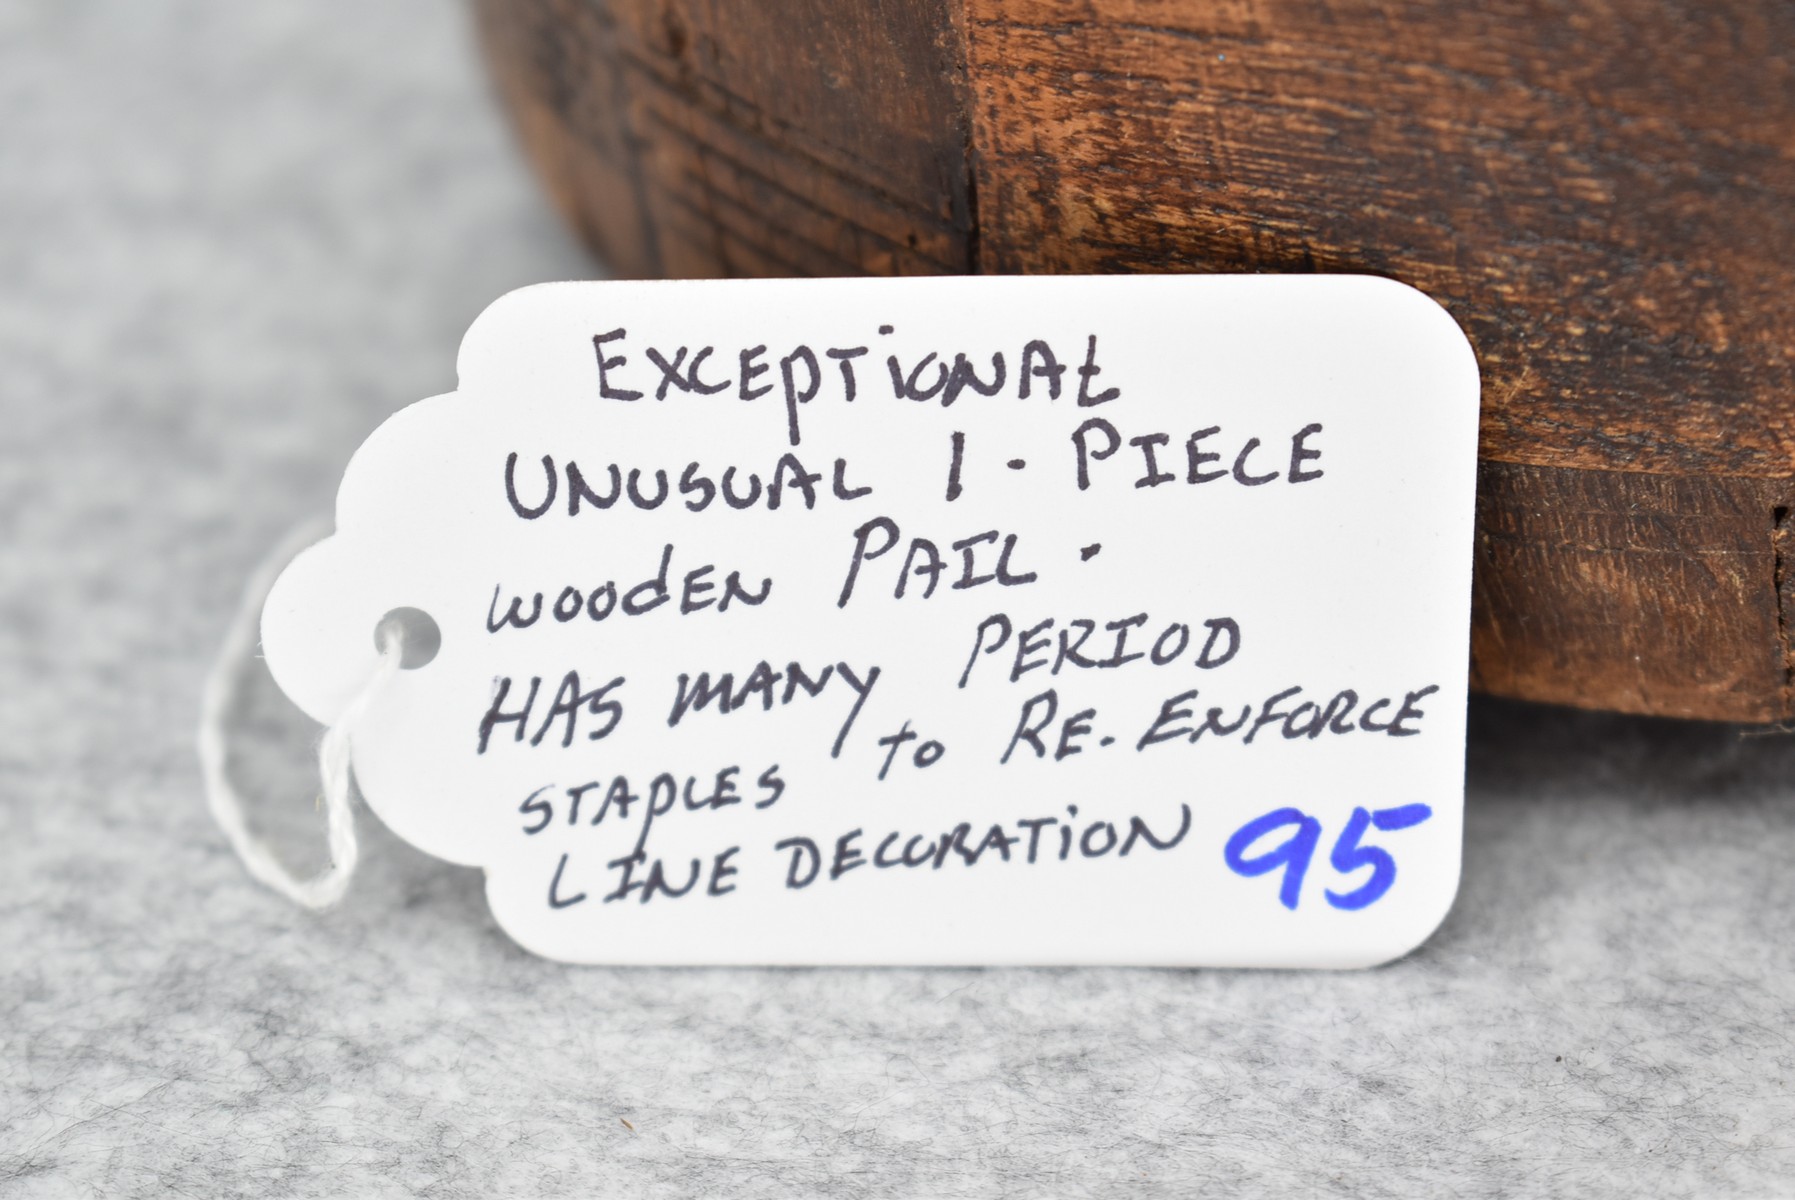 EXCEPTIONAL
UNUSUAL 1 - PIECE
WOODEN PAIL -
HAS MANY PERIOD
STAPLES to RE-ENFORCE
LINE DECORATION 95